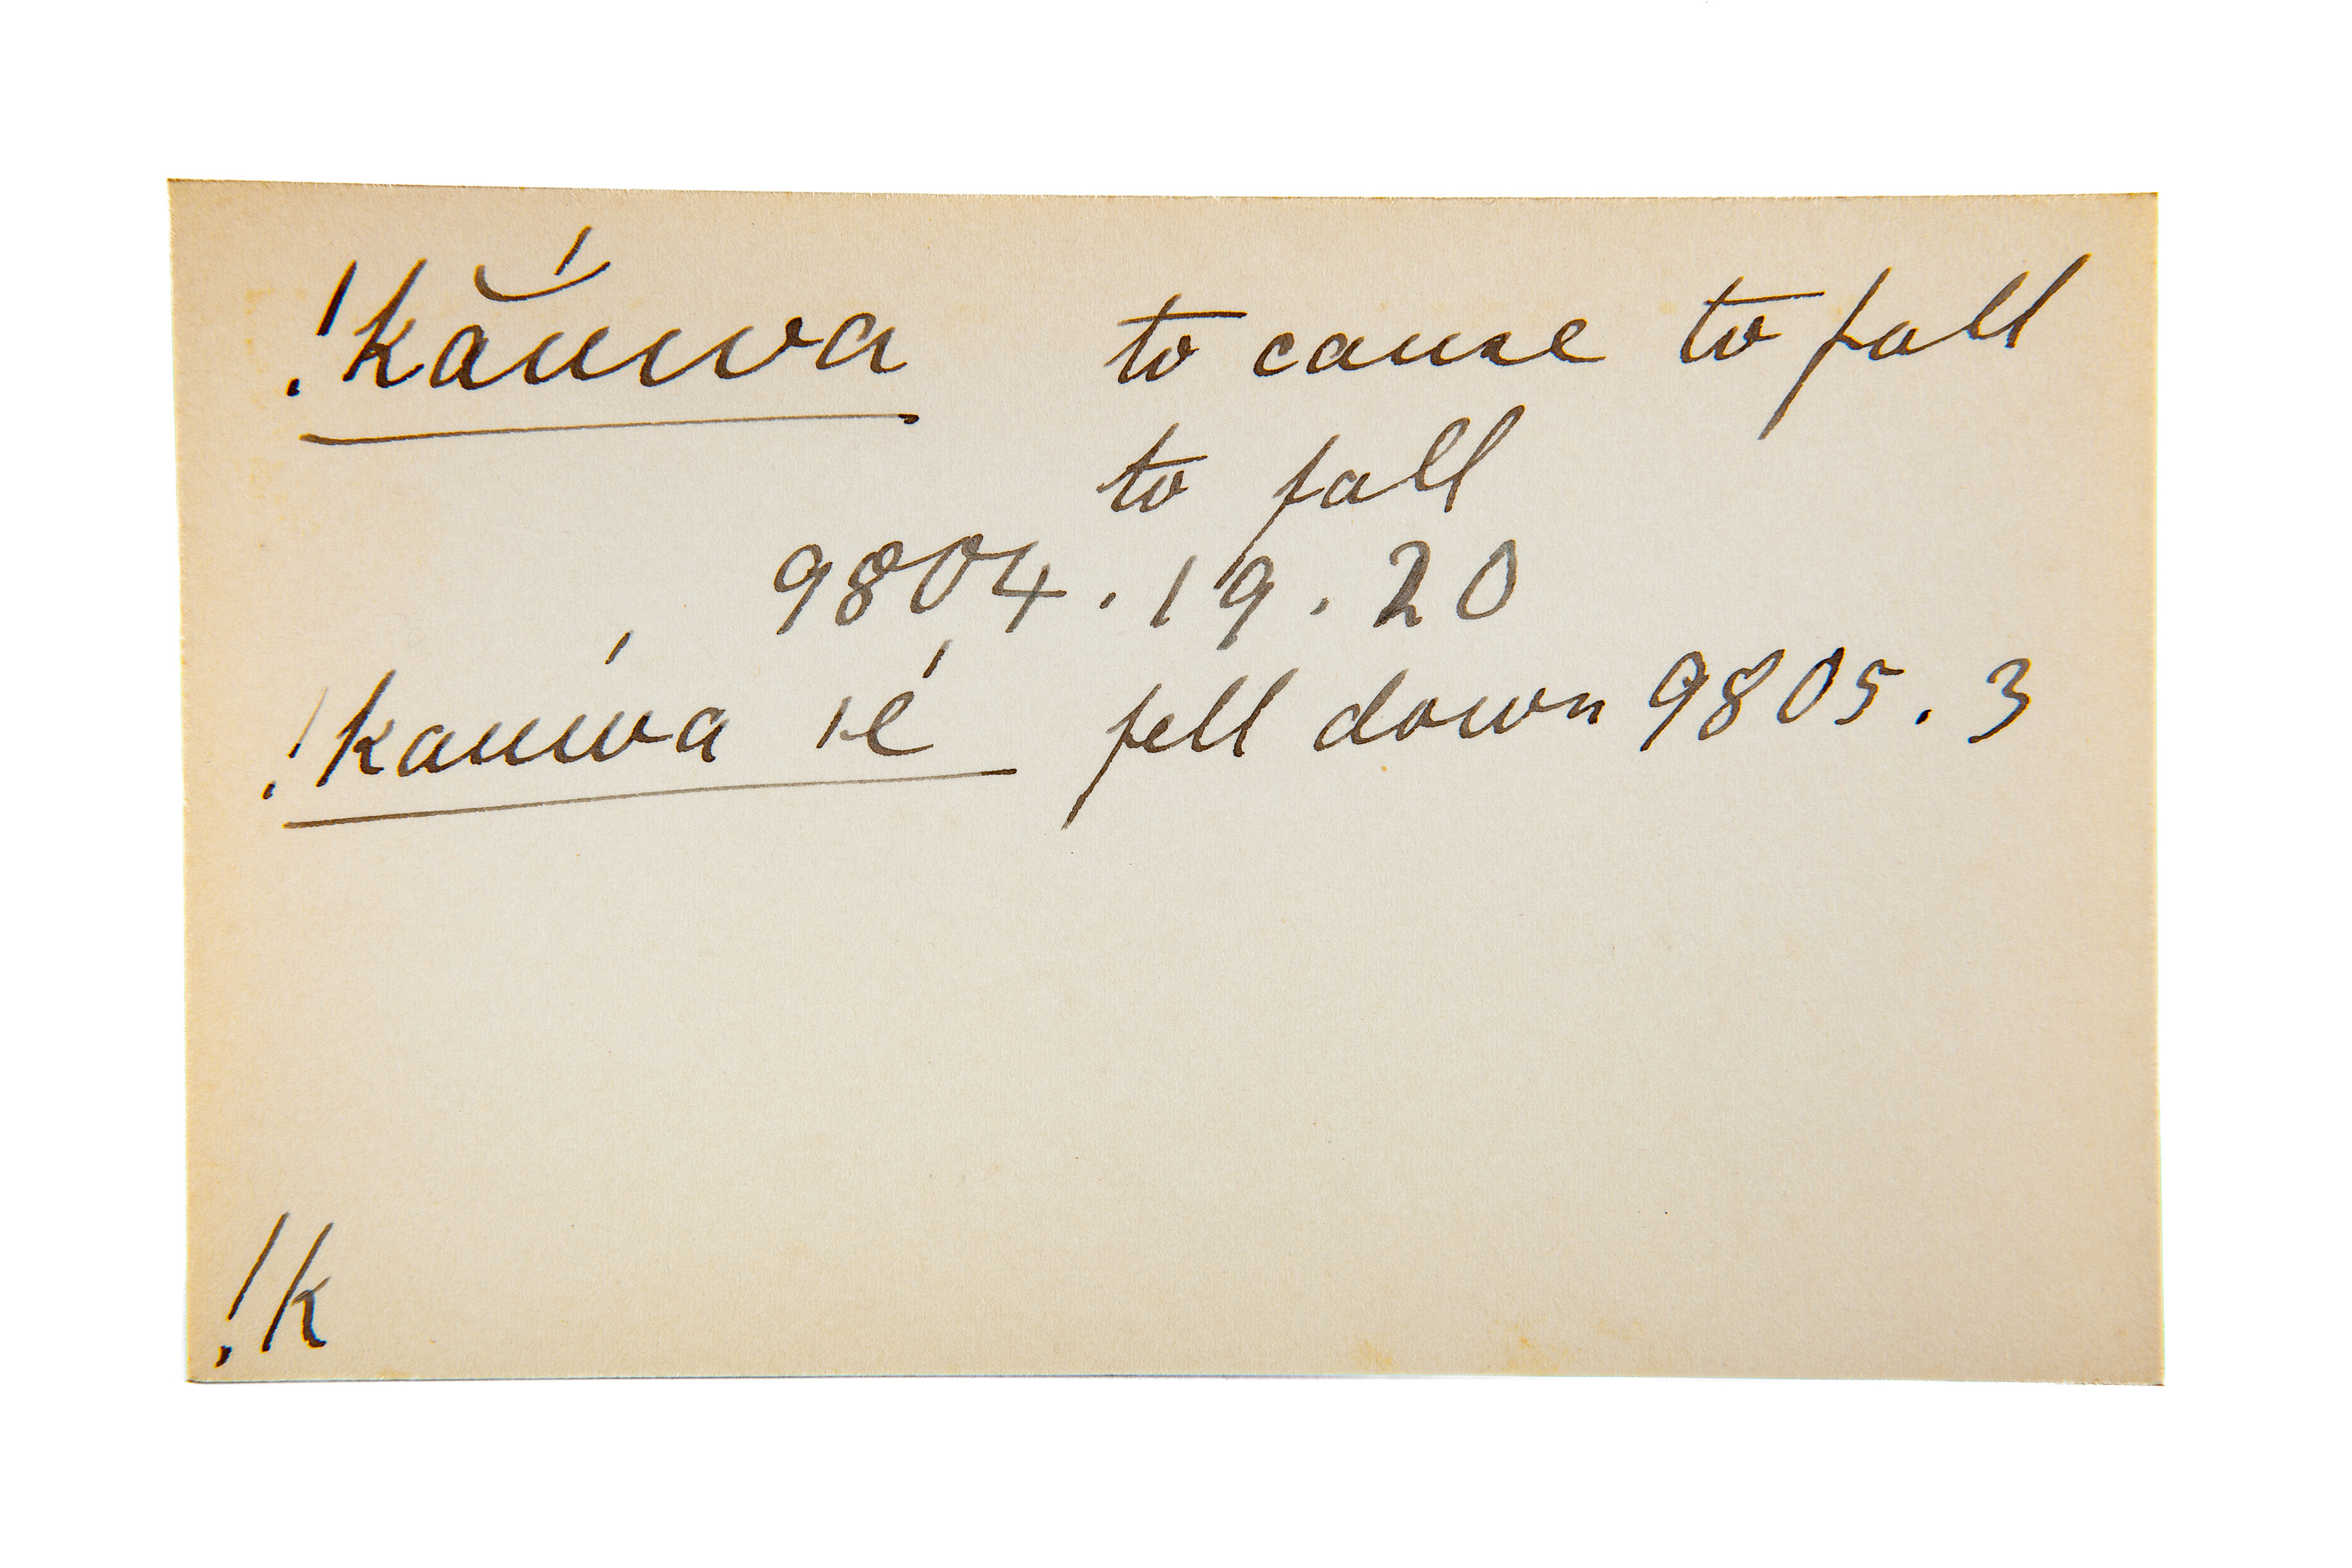 !kắuwa to cause to fall
to fall
9804.19.20
!kaúwa sé fell down 9805.3
!k